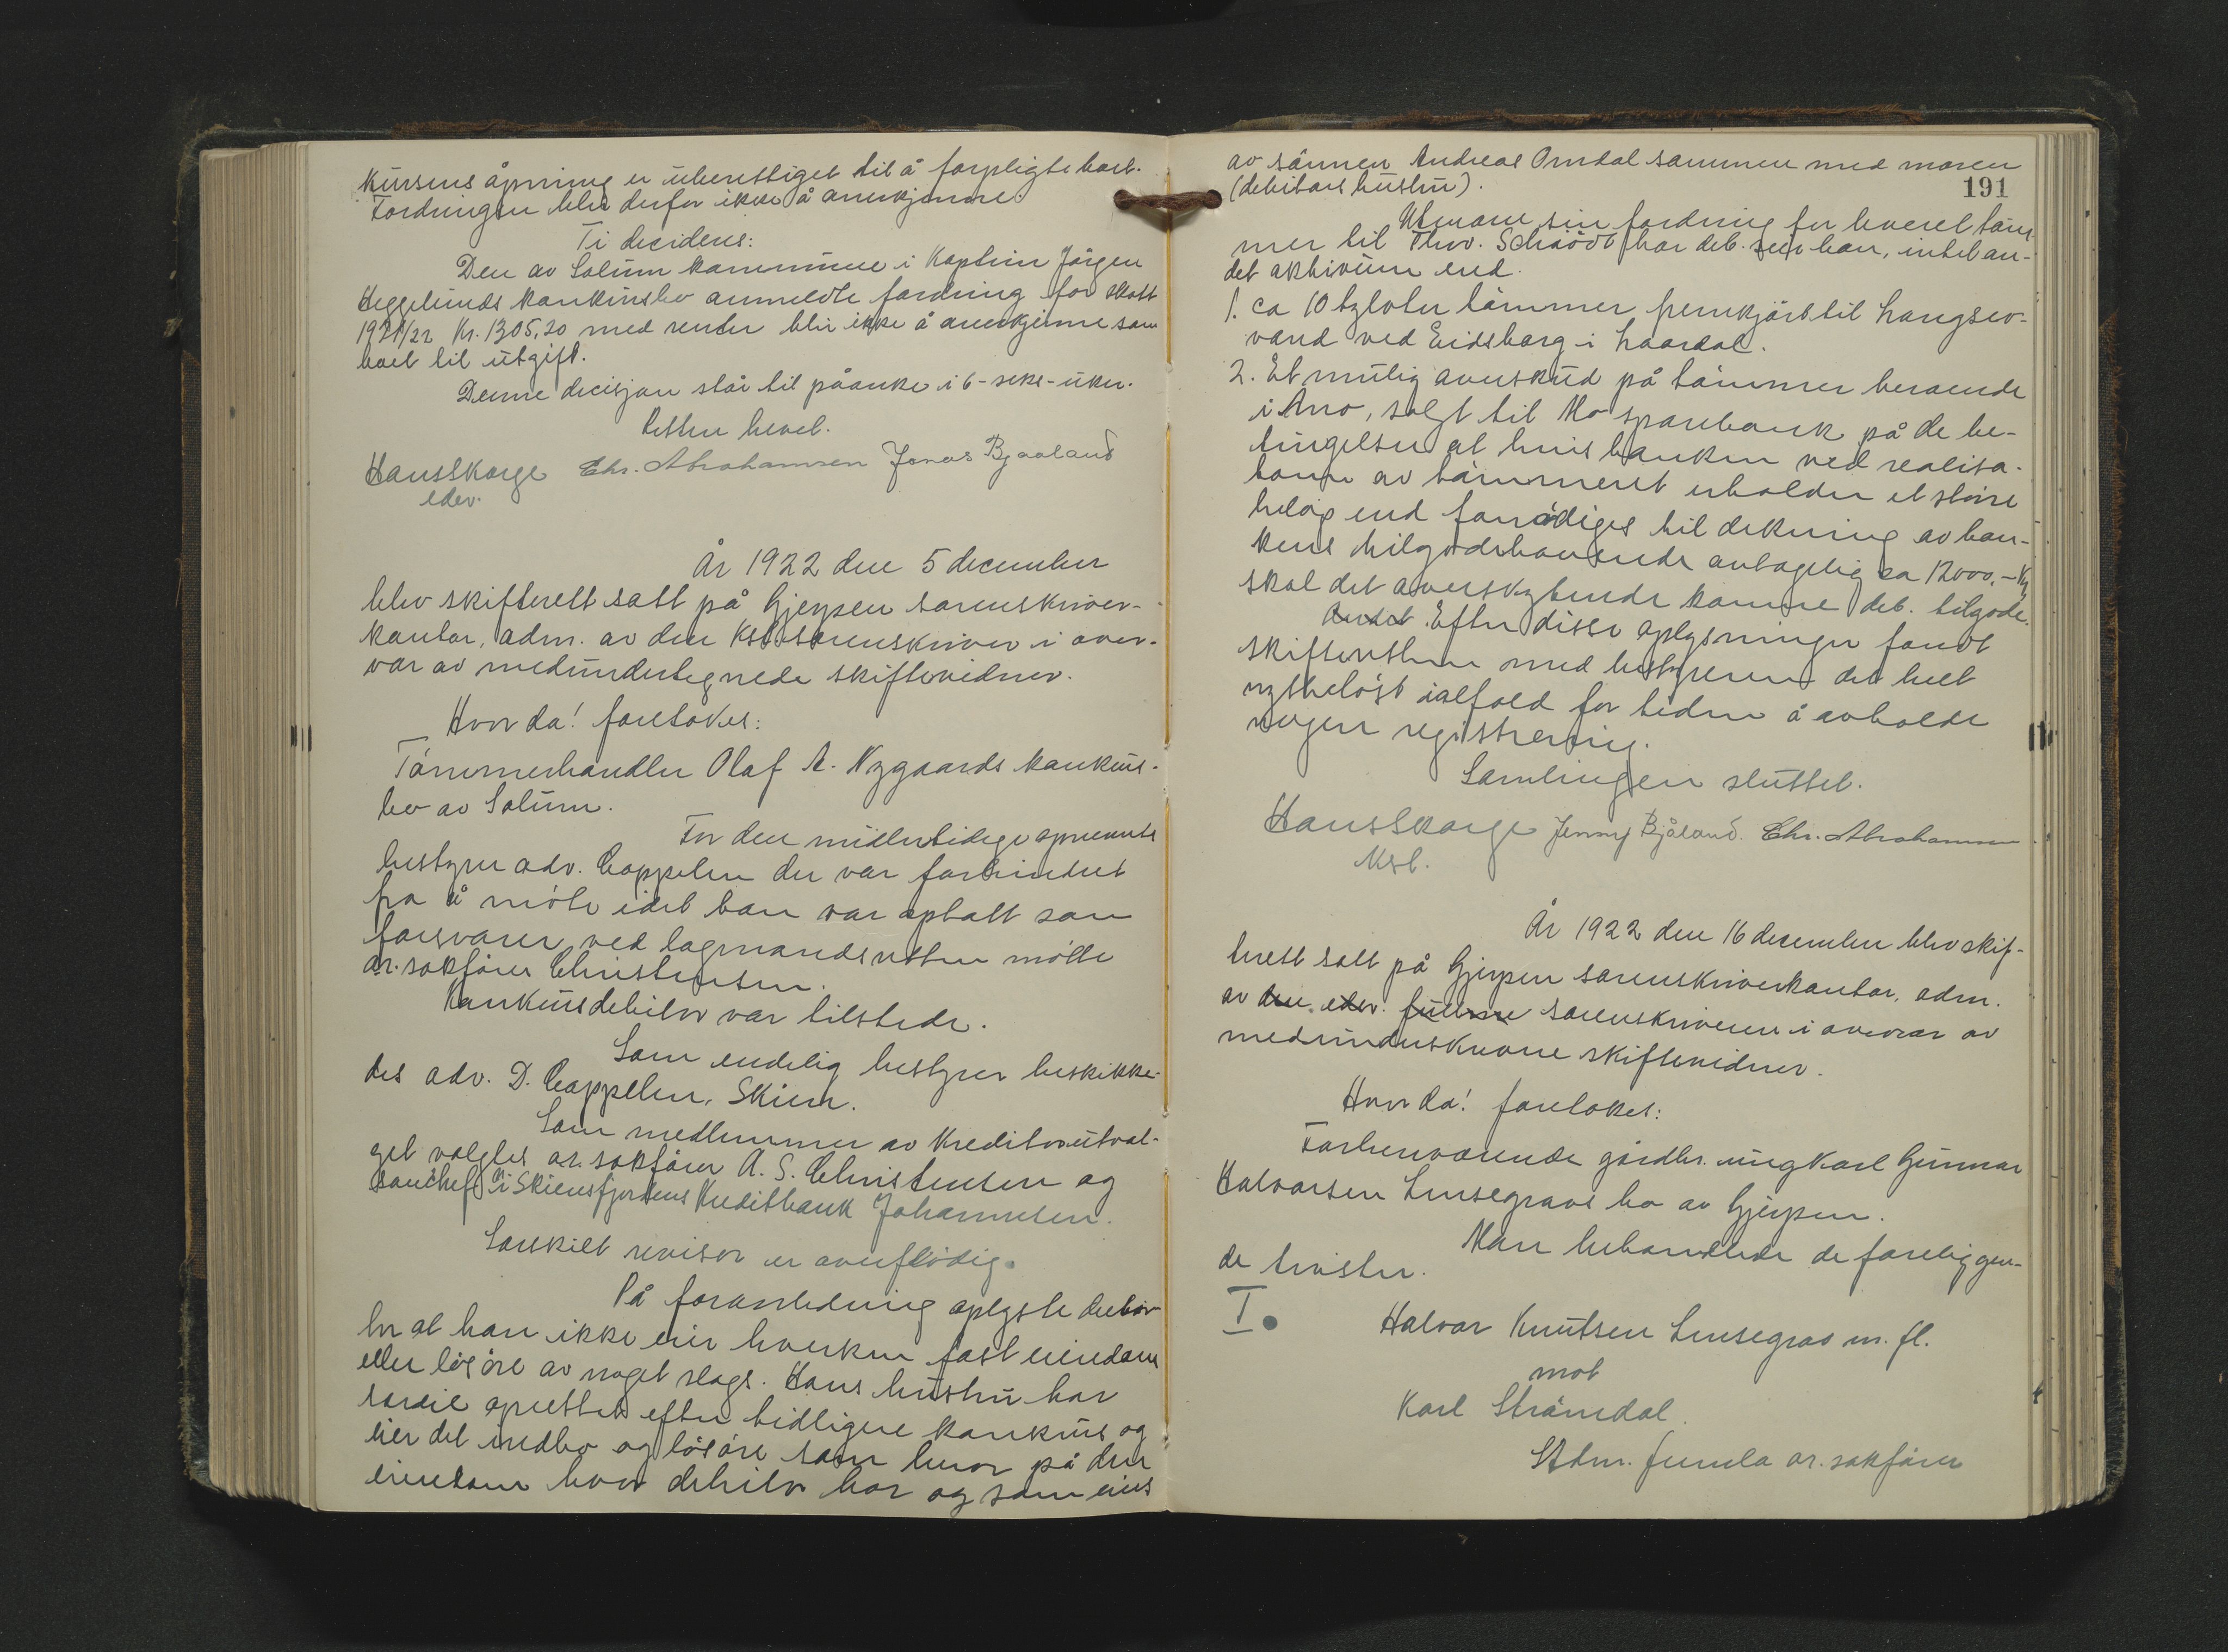 kursens åpning er uberettiget til å forpligte boet.
Fordringen blir derfor ikke å anerkjenne.
Ti decideres:
Den av Solum kommune i Kaptein Jörgen
Heggelunds konkursbo anmeldte fordring for skatt
1921/22 Kr. 1305,20 med renter blir ikke å anerkjenne som
boet til utgift.
Denne decisjon står til påanke i 6-seks-uker.
Retten hevet.
Hans Skarge Chr. Abrahamsen Jonas Bjaaland
edsv.
År 1922 den 5 december
blev skifterett satt på Gjerpen sorenskriver-
kontor, adm. av den Kst. sorenskriver i over-
vær av medundertegnede skiftevidner.
Hvorda! foretokes:
Tömmerhandler Olaf A. Nygaards konkurs-
bo av Solum.
For den midlertidige opnevnte
bestyrer adv. Cappelen der var forhindret
fra å möte idet han var optatt som
forsvarer ved lagmandsretten mötte
or. sakförer Christensen.
Konkursdebitor var tilstede.
Som endelig bestyrer beskikke-
des adv. D. Cappelen, Skien.
Som medlemmer av Kreditorutval-
get valgtes or. sakförer A. S. Christensen og
banchef i Skiensfjordens Kreditbank Johannesen.
Særskilt revisor er overflödig.
På foranledning oplyste debi-
tor at han ikke eier hverken fast eiendom
eller lösöre av noget slags. Hans hustru har
særeie oprettet efter tidligere konkurs og
eier det indbo og lösöre som beror på den
eiendom hvor debitor bor og som eies
191
av sönnen Andreas Omdal sammen med moren
(debitors hustru).
Utenom sin fordring for leveret töm-
mer til Thov. Schiödt har deb. sier han, intet an-
det aktivum end.
1. ca 10 tylvter tömmer fremkjört til Langsev-
vand ved Eidsborg i Laardal.
2. Et mulig overskud på tömmer beroende
i Amo, solgt til Mo sparebank på de be-
tingelser at hvis banken ved realisa-
tonen av tömmeret erholder et större
belöp end fornödiges til dekning av ban-
kens tilgodehavende antagelig ca 12000,- Kr
skal det overskytende komme deb. tilgode.
Andet Efter disse oplysninger fandt
skifteretten med bestyreren det helt
nytteslöst ialfald for tiden å avholde
nogen registrering.
Samlingen sluttet.
Hans Skarge Jenny Bjåland. Chr. Abrahamsen
Kst.
År 1922 den 16 december blev skif-
terett satt på Gjerpen sorenskriverkontor, adm.
av den edsv. fullme sorenskriveren i overvær av
medunderskrevne skiftevidner.
Hvorda! foretokes:
Forhenværende gårdbr. ungkarl Gunnar
Halvorsen Lensegravs bo av Gjerpen.
Man behandlede de foreliggen-
de tvister.
I. Halvor Knutsen Lensegrav m. fl.
mot
Karl Strömdal.
Adm. fremla or. sakförer